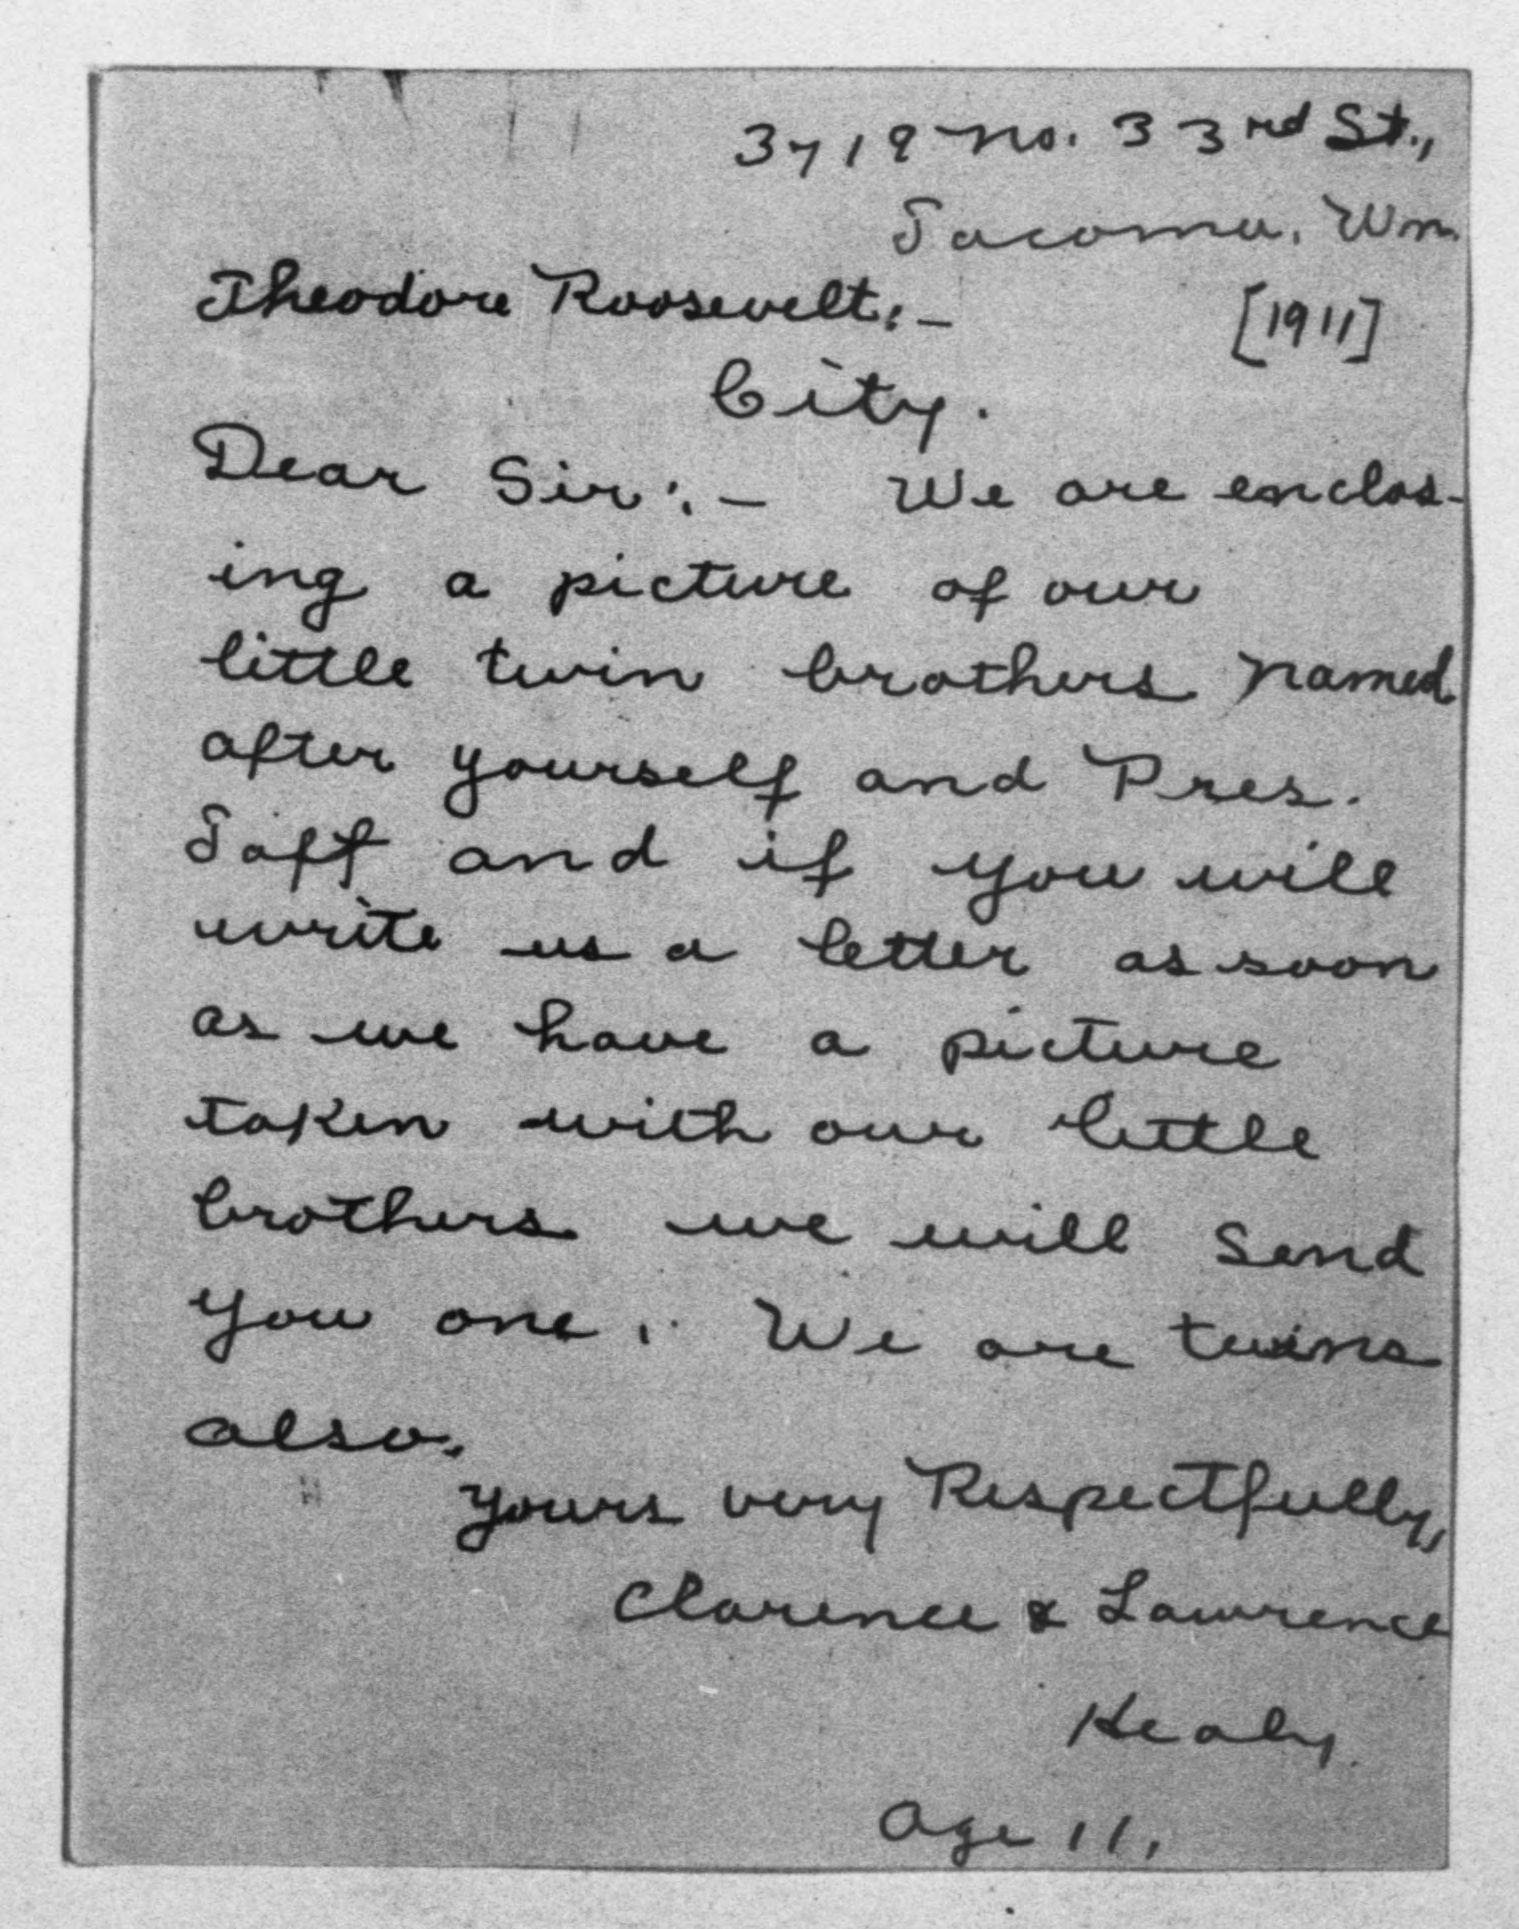 3719 No. 33rd St.,
Tacoma, Wn.
Theodore Roosevelt:-
[1911]
City.
Dear Sir:- We are enclos-
ing a picture of our
little twin brothers named
after yourself and Pres.
Taft and if you will
write us a letter as soon
as we have a picture
taken with our little
brothers we will send
you one. We are twins
also.
Yours very Respectfully,
Clarence & Lawrence
Healy.
Age 11.